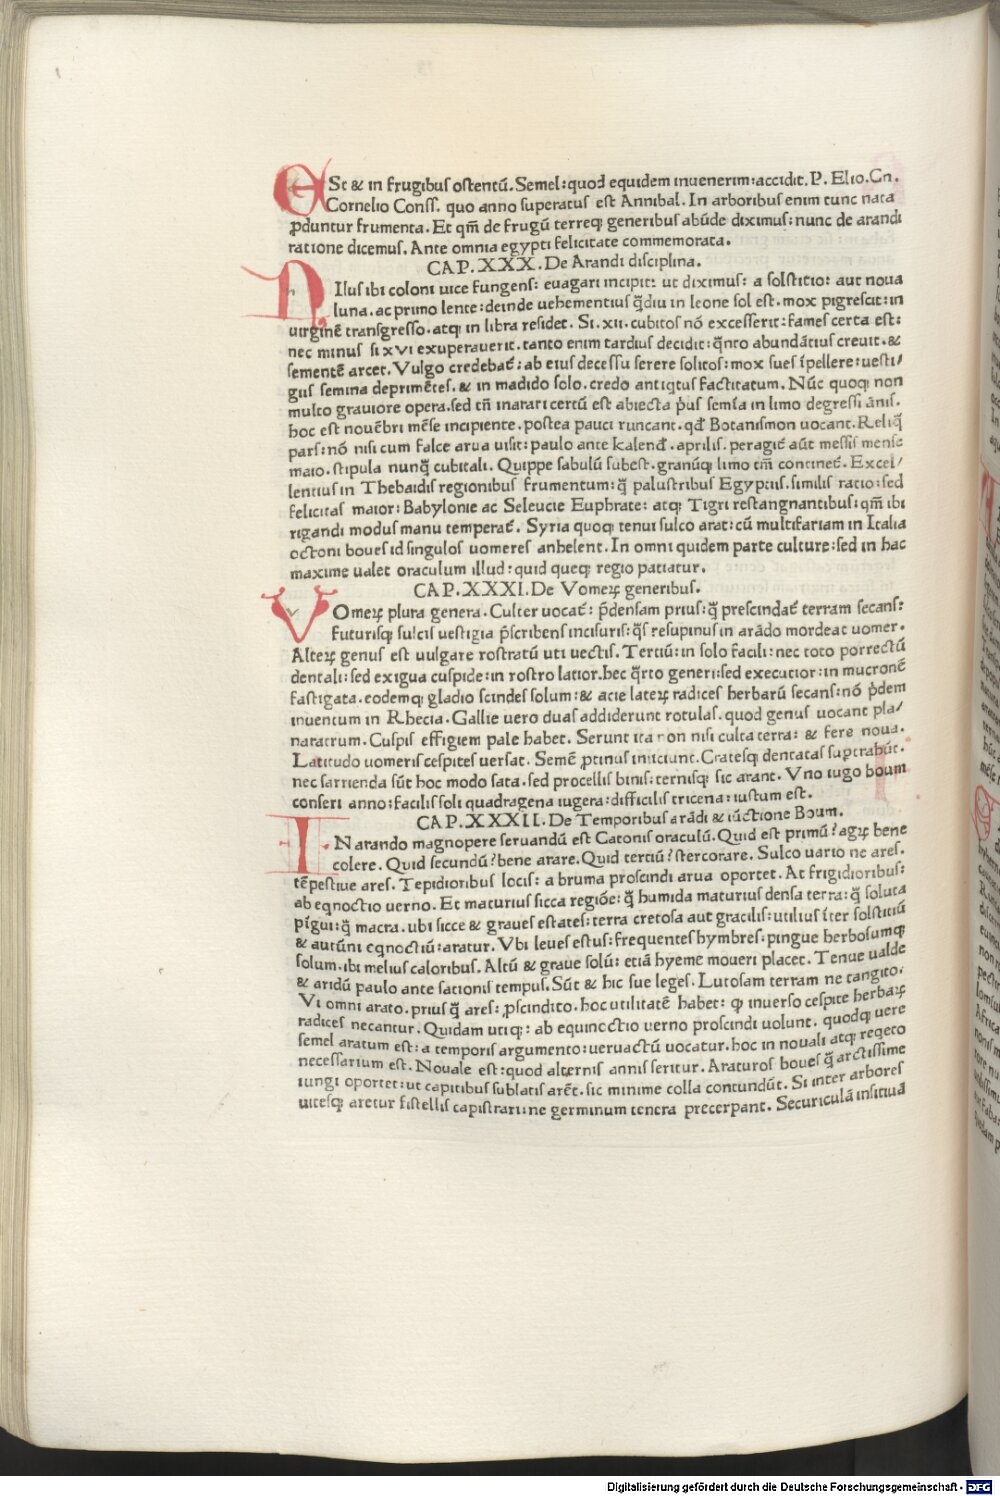 ESt & in frugibus ostentū. Semel: quod equidem inuenerim: accidit. P. Elio. Cn.
Cornelio Conss. quo anno superatus est Annibal. In arboribus enim tunc nata
ꝓduntur frumenta. Et qm̄ de frugū terreqꝫ generibus abūde diximus: nunc de arandi
ratione dicemus. Ante omnia egypti felicitate commemorata.
CAP. XXX. De Arandi disciplina.
NIlus ibi coloni uice fungens: euagari incipit: ut diximus: a solstitio: aut noua
luna. ac primo lente: deinde uehementius q̄diu in leone sol est. mox pigrescit: in
uirginē transgresso. atqꝫ in libra residet. Si. xii. cubitos nō excesserit: fames certa est:
nec minus si xvi exuperauerit. tanto enim tardius decidit: q̄nto abundātius creuit. &
sementē arcet. Vulgo credebat̄: ab eius decessu serere solitos: mox sues īpellere: uesti/
giis semina deprimētes. & in madido solo. credo antiqitus factitatum. Nūc quoqꝫ non
multo grauiore opera. sed tn̄ inarari certū est abiecta p̄us semīa in limo degressi ānis.
hoc est nouēbri mēse incipiente. postea pauci runcant. qd̄ Botanismon uocant. Reliq̄
pars: nō nisi cum falce arua uisit: paulo ante kalend̄. aprilis. peragit̄ aūt messis mense
maio. stipula nunq̄ cubitali. Quippe sabulū subest. granūqꝫ limo tm̄ continet̄. Excel/
lentius in Thebaidis regionibus frumentum: q̄ palustribus Egyptus. similis ratio: sed
felicitas maior: Babylonie ac Seleucie Euphrate: atqꝫ Tigri restangnantibus: qm̄ ibi
rigandi modus manu temperat̄. Syria quoqꝫ tenui sulco arat: cū multifariam in Italia
octoni boues id singulos uomeres anhelent. In omni quidem parte culture: sed in hac
maxime ualet oraculum illud: quid queqꝫ regio patiatur.
CAP. XXXI. De Vomeꝝ generibus.
VOmeꝝ plura genera. Culter uocat̄: p̄densam prius: q̄ prescindat̄ terram secans:
futurisqꝫ sulcis uestigia p̄scribens incisuris: q̄s resupinus in arādo mordeat uomer.
Alteꝝ genus est uulgare rostratū uti uectis. Tertiū: in solo facili: nec toto porrectū
dentali: sed exigua cuspide: in rostro latior. hec q̄rto generi: sed executior: in mucronē
fastigata. eodemqꝫ gladio scindes solum: & acie lateꝝ radices herbarū secans: nō p̄dem
inuentum in Rhecia. Gallie uero duas addiderunt rotulas. quod genus uocant pla/
naratrum. Cuspis effigiem pale habet. Serunt ita non nisi culta terra: & fere noua.
Latitudo uomeris cespites uersat. Semē ꝓtinus iniiciunt. Cratesqꝫ dentatas suptrabūt.
nec sarrienda sūt hoc modo sata. sed procellis binis: ternisqꝫ sic arant. Vno iugo boum
conseri anno: facilis soli quadragena iugera: difficilis tricena: iustum est.
CAP. XXXII. De Temporibus arādi & iūctione Boum.
IN arando magnopere seruandū est Catonis oraculū. Quid est primū? agꝝ bene
colere. Quid secundū? bene arare. Quid tertiū? stercorare. Sulco uario ne ares.
tēpestiue ares. Tepidioribus locis: a bruma proscindi arua oportet. At frigidioribus:
ab eqnoctio uerno. Et maturius sicca regiōe: q̄ humida maturius densa terra: q̄ soluta
pīgui: q̄ macra. ubi sicce & graues estates: terra cretosa aut gracilis: utilius īter solstitiū
& autūni eqnoctiū: aratur. Vbi leues estus: frequentes hymbres: pingue herbosumqꝫ
solum. ibi melius caloribus. Altū & graue solū: etiā hyeme moueri placet. Tenue ualde
& aridū paulo ante sationis tempus. Sūt & hic sue leges. Lutosam terram ne tangito.
Vi omni arato. prius q̄ ares: ꝓscindito. hoc utilitatē habet: ꝙ inuerso cespite herbaꝝ
radices necantur. Quidam utiqꝫ: ab equinoctio uerno proscindi uolunt. quodqꝫ uere
semel aratum est: a temporis argumento: ueruactū uocatur. hoc in nouali atqꝫ reqeto
necessarium est. Nouale est: quod alternis annis seritur. Araturos boues q̄ arctissime
iungi oportet: ut capitibus sublatis arēt. sic minime colla contundūt. Si inter arbores
uitesqꝫ aretur fistellis capistrari: ne germinum tenera precerpant. Securiculā insitiuā